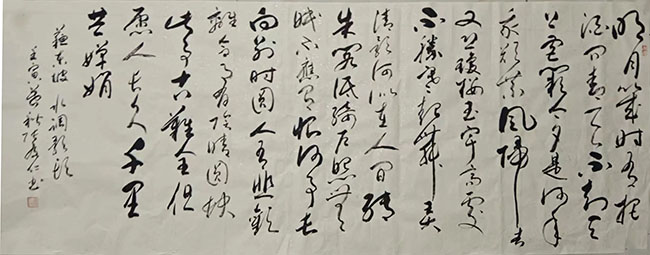 明月幾时有把
酒问青天不知天
上宫阙今夕是何年
我欲乘风归去
又恐琼楼玉宇高处
不勝寒起舞弄
清影何似在人间转
朱阁低绮户照无
眠不應有恨何事长
向别时圆人有悲歡
離合月有阴晴圆缺
此事古難全但
愿人长久千里
共嬋娟
蘇东坡水调歌头
壬寅暮秋 仁书